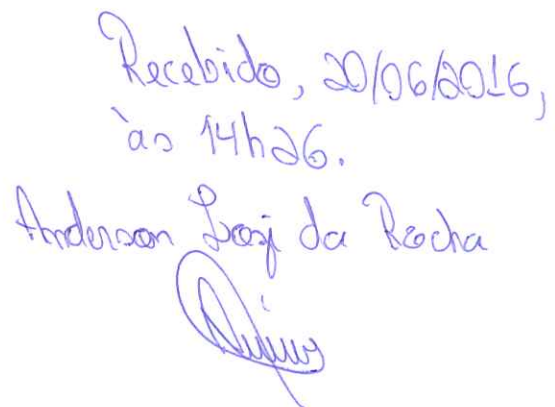 Recebido, 20/06/2016,
às 14h26.
Anderson da Rocha